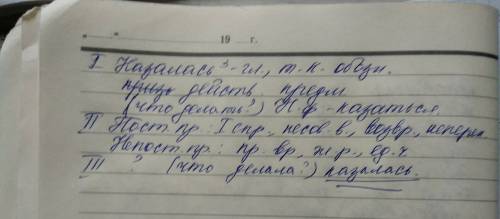 " " 19 г.
I Казалась³ - гл., т.к. обозн.
действ. предм
(что делать?) Н.ф. - казаться
II Пост. пр.: I спр., несов. в., возвр., неперех
Непост. пр.: пр. вр., ж.р., ед. ч.
III ? (что делала?) казалась.